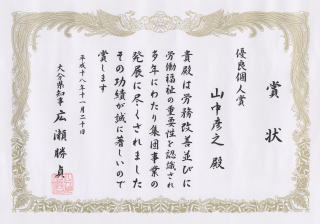 賞状
優良個人賞
山中彦之殿
貴殿は労務改善並びに
労働福祉の重要性を認識され
多年にわたり集団事業の
発展に尽くされました
その功績が誠に著しいので
賞します
平成十八年十一月二十日
大分県知事 広瀬勝貞